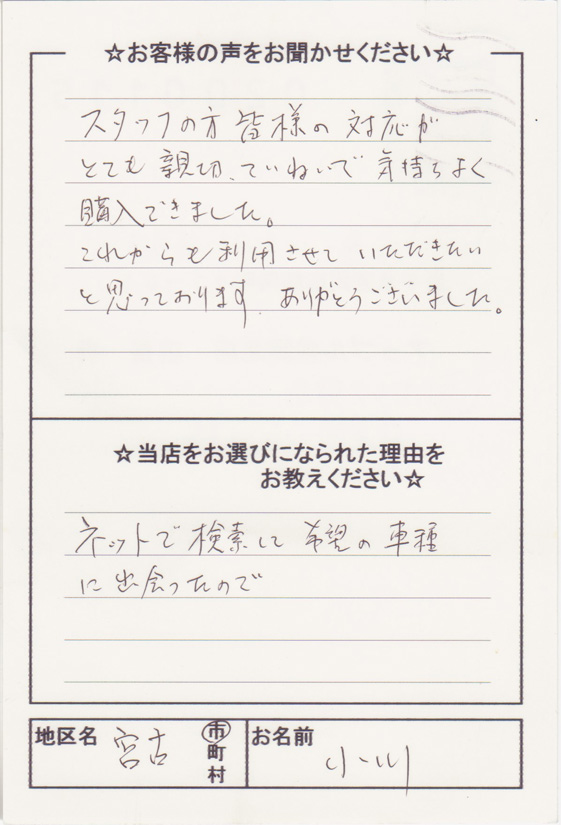 ☆お客様の声をお聞かせください☆
スタッフの方皆様の対応が
とても親切、ていねいで気持ちよく
購入できました。
これからも利用させていただきたい
と思っております。ありがとうございました。
☆当店をお選びになられた理由を
お教えください☆
ネットで検索して希望の車種
に出会ったので
地区名 宮古 市町村
お名前 小川